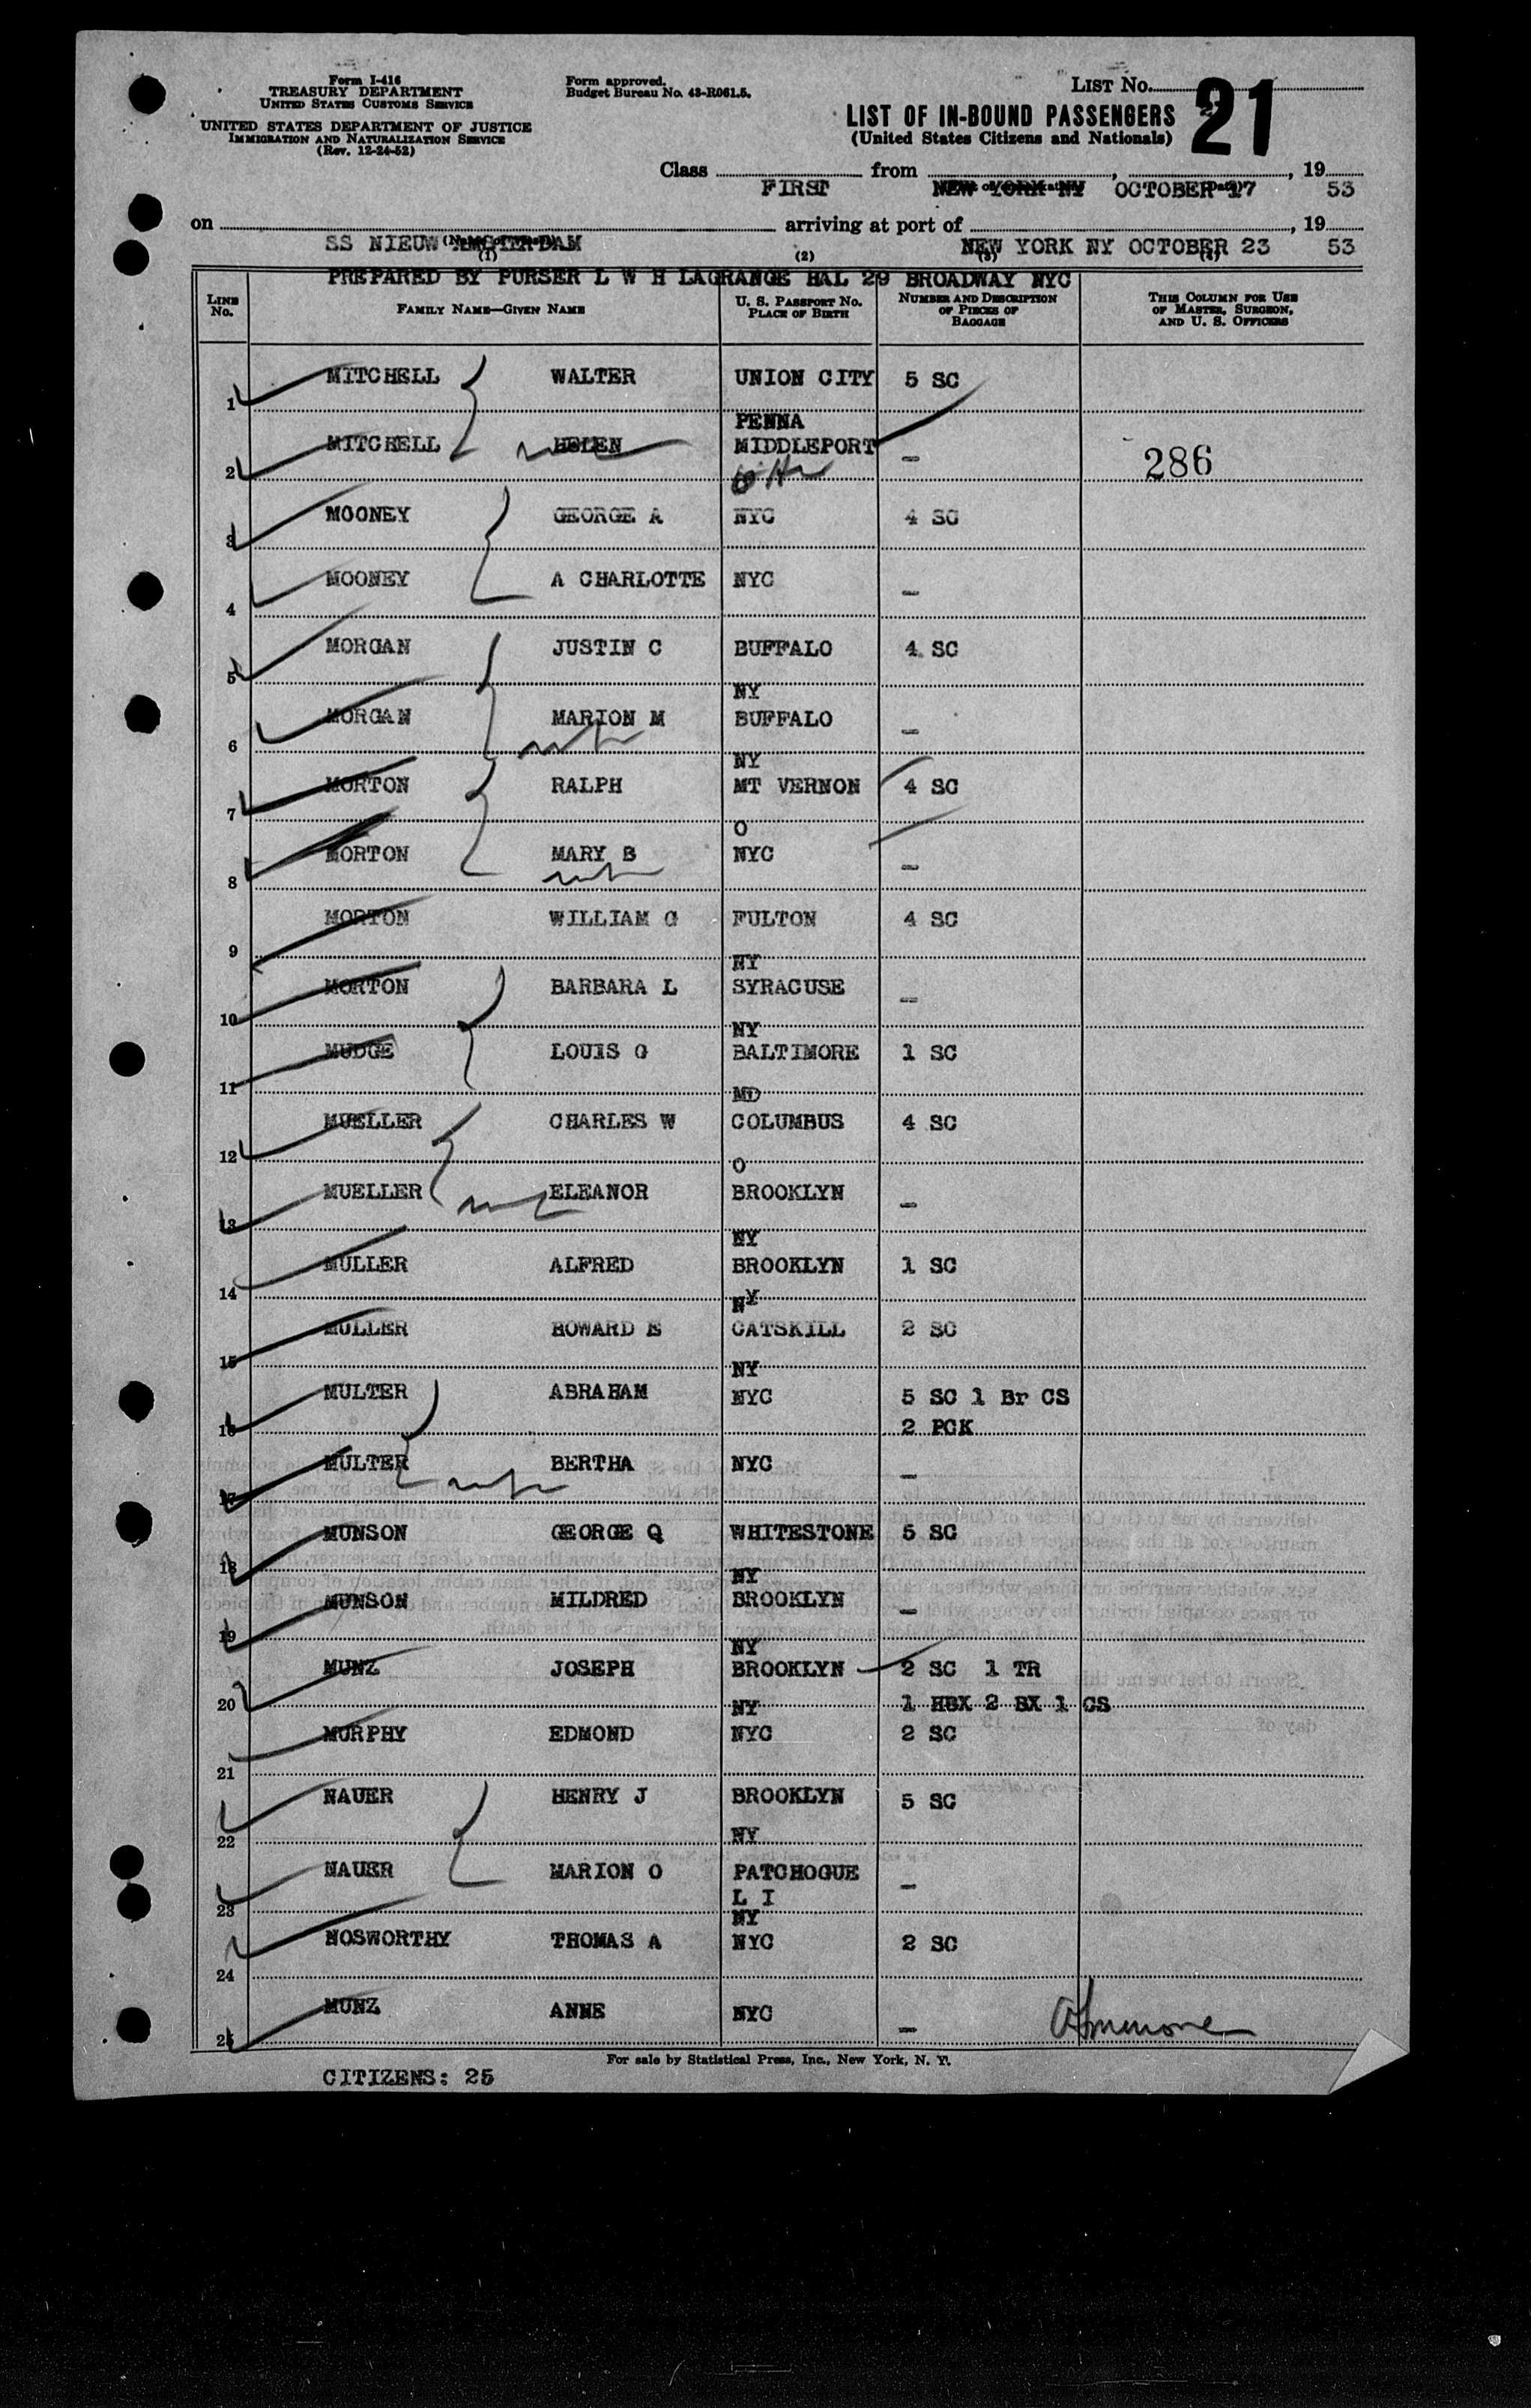 Form I-416
TREASURY DEPARTMENT
UNITED STATES CUSTOMS SERVICE
UNITED STATES DEPARTMENT OF JUSTICE
IMMIGRATION AND NATURALIZATION SERVICE
(Rev. 12-24-52)
Form approved.
Budget Bureau No. 43-R061.5.
LIST NO. 21
LIST OF IN-BOUND PASSENGERS
(United States Citizens and Nationals)
Class FIRST from NEW YORK NY, OCTOBER 17, 19 53
on SS NIEUW AMSTERDAM arriving at port of NEW YORK NY OCTOBER 23, 19 53
(1) (2) (3) (4)
PREPARED BY PURSER L W H LAGRANGE HAL 29 BROADWAY NYC
LINE NO. FAMILY NAME—GIVEN NAME U. S. PASSPORT NO. PLACE OF BIRTH NUMBER AND DESCRIPTION OF PIECES OF BAGGAGE THIS COLUMN FOR USE OF MASTER, SURGEON, AND U. S. OFFICERS
1 MITCHELL WALTER UNION CITY PENNA 5 SC
2 MITCHELL HELEN MIDDLEPORT — 286
3 MOONEY GEORGE A NYC 4 SC
4 MOONEY A CHARLOTTE NYC —
5 MORGAN JUSTIN C BUFFALO NY 4 SC
6 MORGAN MARION M BUFFALO NY —
7 MORTON RALPH MT VERNON O 4 SC
8 MORTON MARY B NYC —
9 MORTON WILLIAM G FULTON NY 4 SC
10 MORTON BARBARA L SYRACUSE NY —
11 MUDGE LOUIS G BALTIMORE MD 1 SC
12 MUELLER CHARLES W COLUMBUS O 4 SC
13 MUELLER ELEANOR BROOKLYN NY —
14 MULLER ALFRED BROOKLYN NY 1 SC
15 MULLER HOWARD E CATSKILL NY 2 SC
16 MULTER ABRAHAM NYC 5 SC 1 Br CS
2 PCK
17 MULTER BERTHA NYC —
18 MUNSON GEORGE Q WHITESTONE NY 5 SC
19 MUNSON MILDRED BROOKLYN NY —
20 MUNZ JOSEPH BROOKLYN NY 2 SC 1 TR
1 HBX 2 BX 1 CS
21 MURPHY EDMOND NYC 2 SC
22 NAUER HENRY J BROOKLYN NY 5 SC
23 NAUER MARION O PATCHOGUE L I NY —
24 NOSWORTHY THOMAS A NYC 2 SC
25 MUNZ ANNE NYC —
For sale by Statistical Press, Inc., New York, N. Y.
CITIZENS: 25